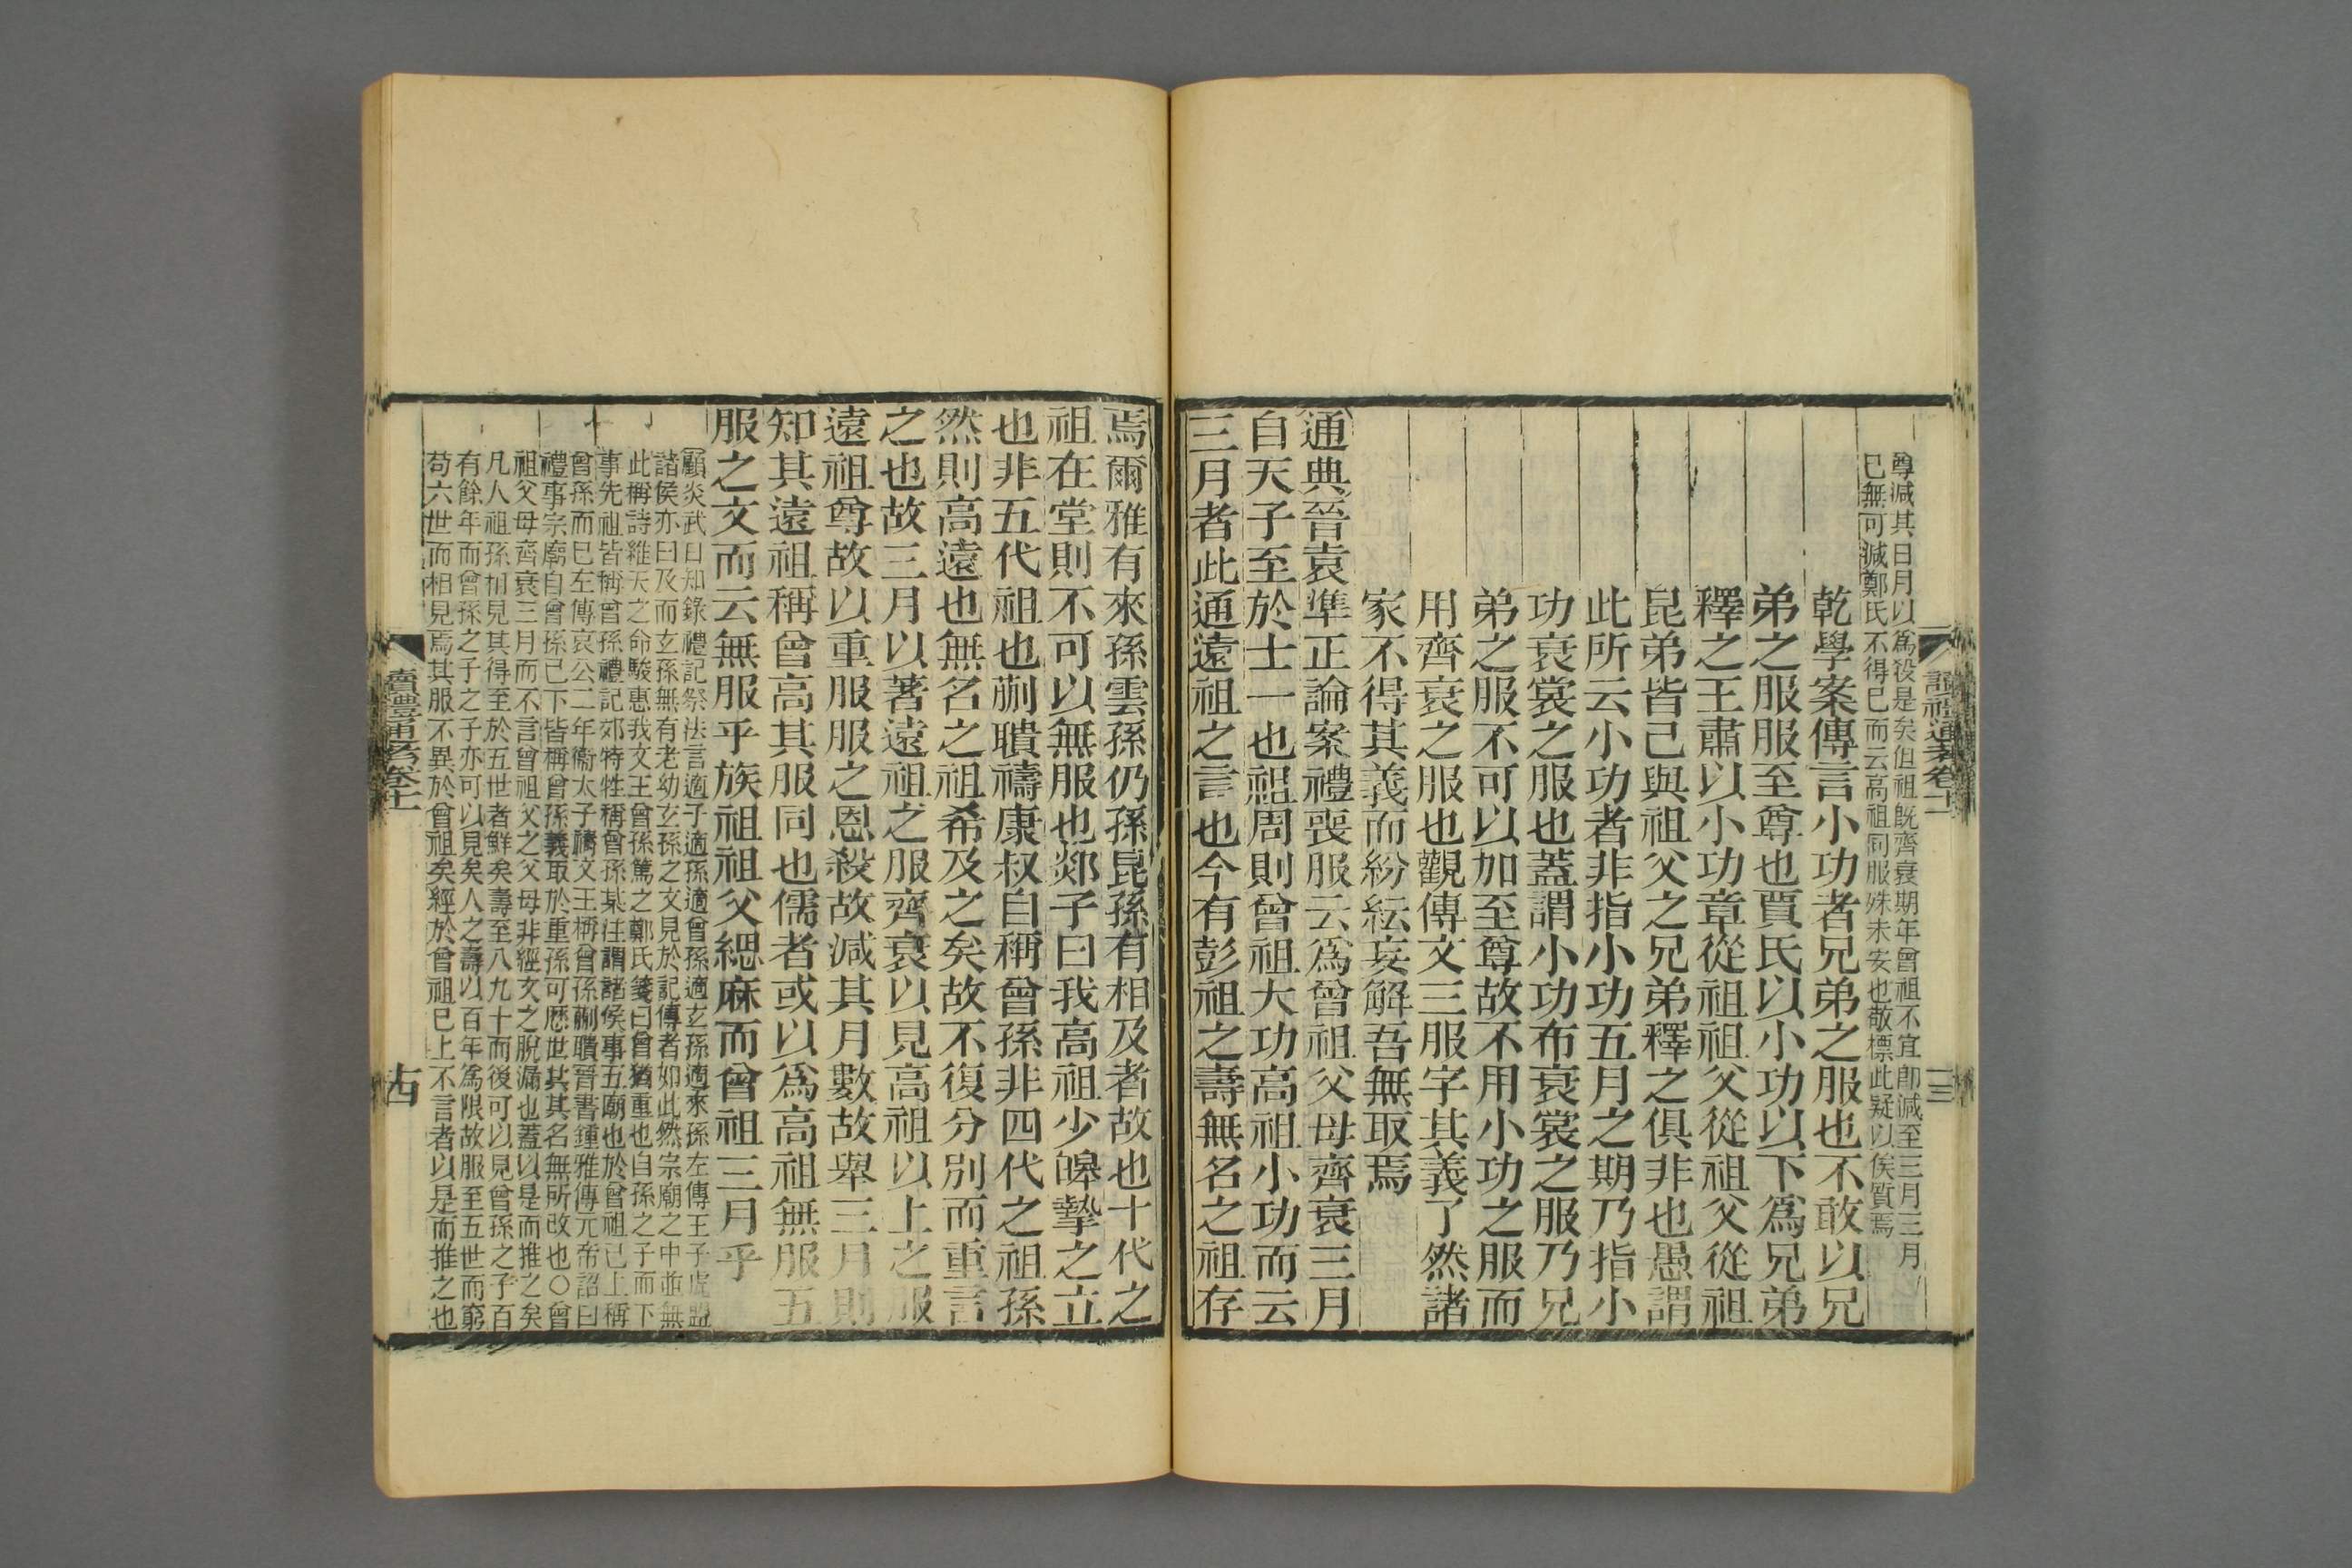 尊減其日月以爲殺是矣但祖旣齊衰期年曾祖不宜卽減至三月三月
已無可減鄭氏不得已而云高祖同服殊未安也敬標此疑以俟質焉
乾學案傳言小功者兄弟之服也不敢以兄
弟之服服至尊也賈氏以小功以下爲兄弟
釋之王肅以小功章從祖祖父從祖父從祖
昆弟皆己與祖父之兄弟釋之俱非也愚謂
此所云小功者非指小功五月之期乃指小
功衰裳之服也蓋謂小功布衰裳之服乃兄
弟之服不可以加至尊故不用小功之服而
用齊衰之服也觀傳文三服字其義了然諸
家不得其義而紛紜妄解吾無取焉
通典晉袁準正論案禮喪服云爲曾祖父母齊衰三月
自天子至於士一也祖周則曾祖大功高祖小功而云
三月者此通遠祖之言也今有彭祖之壽無名之祖存
焉爾雅有來孫雲孫仍孫昆孫有相及者故也十代之
祖在堂則不可以無服也郯子曰我高祖少皞摯之立
也非五代祖也蒯聵禱康叔自稱曾孫非四代之祖孫
然則高遠也無名之祖希及之矣故不復分別而重言
之也故三月以著遠祖之服齊衰以見高祖以上之服
遠祖尊故以重服服之恩殺故減其月數故舉三月則
知其遠祖稱曾高其服同也儒者或以爲高祖無服五
服之文而云無服乎族祖祖父緦麻而曾祖三月乎
顧炎武日知錄禮記祭法言適子適孫適曾孫適玄孫適來孫左傳王子虎盟
諸侯亦曰及而玄孫無有老幼玄孫之文見於記傳者如此然宗廟之中並無
此稱詩維天之命駿惠我文王曾孫篤之鄭氏箋曰曾猶重也自孫之子而下
事先祖皆稱曾孫禮記郊特牲稱曾孫某注謂諸侯事五廟也於曾祖已上稱
曾孫而已左傳哀公二年衞太子禱文王稱曾孫蒯聵晉書鍾雅傳元帝詔曰
禮事宗廟自曾孫已下皆稱曾孫義取於重孫可歷世共其名無所改也○曾
祖父母齊衰三月而不言曾祖父之父母非經文之脫漏也蓋以是而推之矣
凡人祖孫相見其得至於五世者鮮矣壽至八九十而後可以見曾孫之子百
有餘年而曾孫之子之子亦可以見矣人之壽以百年爲限故服至五世而窮
苟六世而相見焉其服不異於曾祖矣經於曾祖已上不言者以是而推之也
讀禮通考卷十一
十四